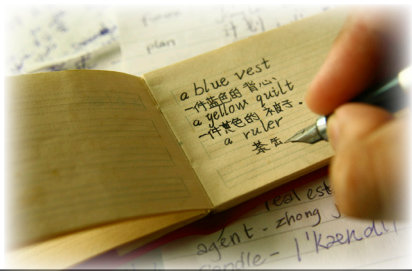 plan
a blue vest
一件蓝色的 背心、
a yellow quilt
一件黄色的 被子.
a ruler
real est
agent - zhong
candle - |'kaendl